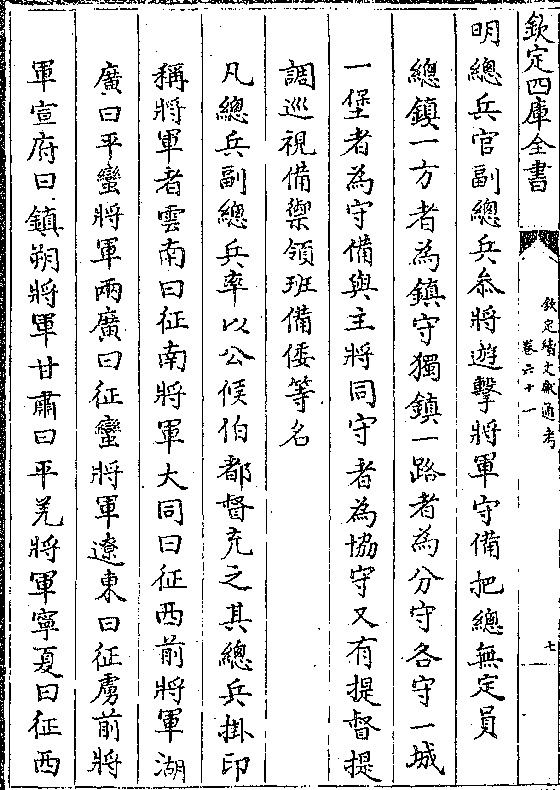 欽定四庫全書
欽定續文獻通考
卷六十一
七
明總兵官副總兵叅將遊擊將軍守備把總無定員
總鎮一方者為鎮守獨鎮一路者為分守各守一城
一堡者為守備與主將同守者為協守又有提督提
調巡視備禦領班備倭等名
凡總兵副總兵率以公侯伯都督充之其總兵掛印
稱將軍者雲南曰征南將軍大同曰征西前將軍湖
廣曰平蠻將軍兩廣曰征蠻將軍遼東曰征虜前將
軍宣府曰鎮朔將軍甘肅曰平羌將軍寧夏曰征西